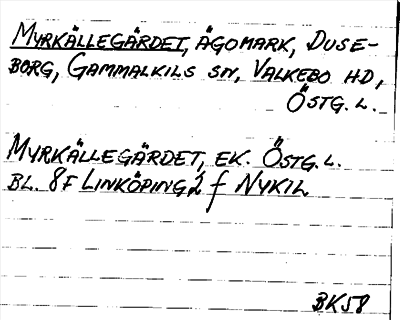 MYRKÄLLEGÄRDET, ÄGOMARK, DUSE-
BORG, GAMMALKILS SN, VALKEBO HD,
ÖSTG. L.
MYRKÄLLEGÄRDET, EK. ÖSTG. L.
BL. 8F LINKÖPING, 2 f NYKIL
BK58